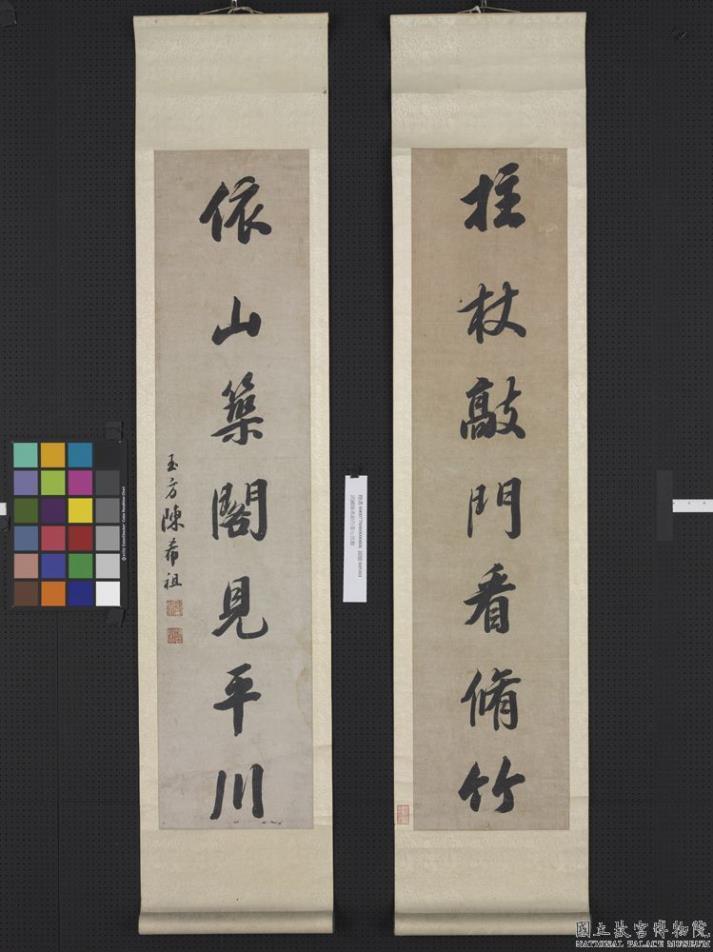 拄杖敲門看脩竹
依山築閣見平川
玉方陳希祖
國立故宮博物院
NATIONAL PALACE MUSEUM